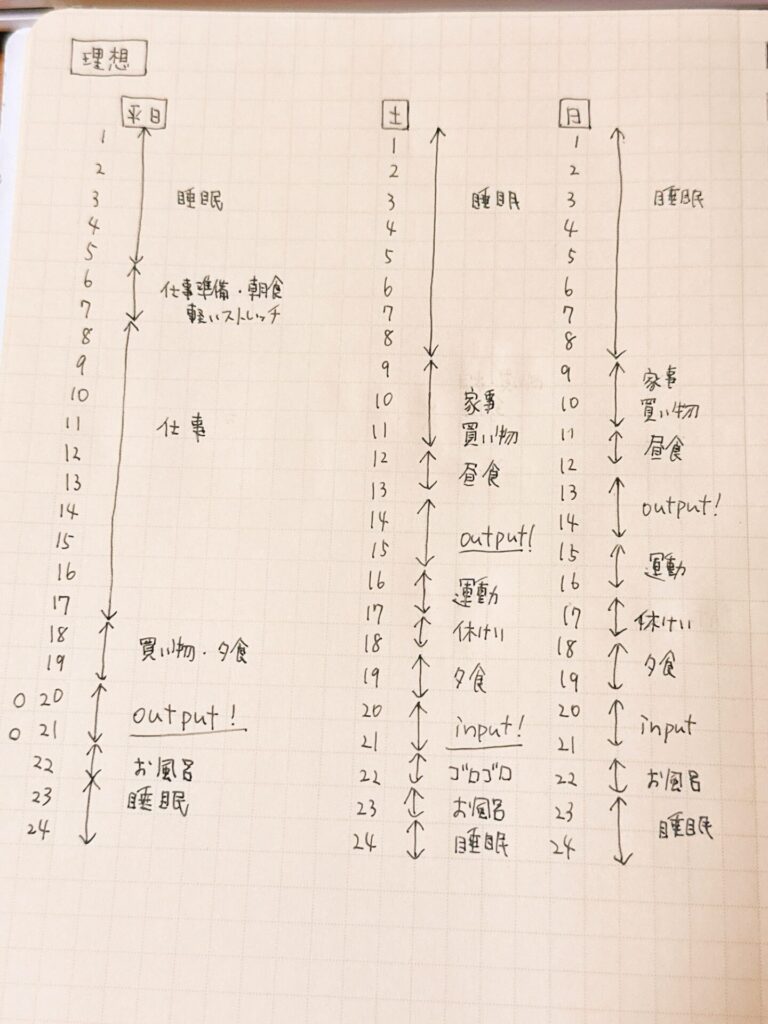 理想
平日
1
2
3
4
5
6
7
8
9
10
11
12
13
14
15
16
17
18
19
○ 20
○ 21
22
23
24
睡眠
仕事準備・朝食
軽いストレッチ
仕事
買い物・夕食
output!
お風呂
睡眠
土
1
2
3
4
5
6
7
8
9
10
11
12
13
14
15
16
17
18
19
20
21
22
23
24
睡眠
家事
買い物
昼食
output!
運動
休けい
夕食
input!
ゴロゴロ
お風呂
睡眠
日
1
2
3
4
5
6
7
8
9
10
11
12
13
14
15
16
17
18
19
20
21
22
23
24
睡眠
家事
買い物
昼食
output!
運動
休けい
夕食
input
お風呂
睡眠